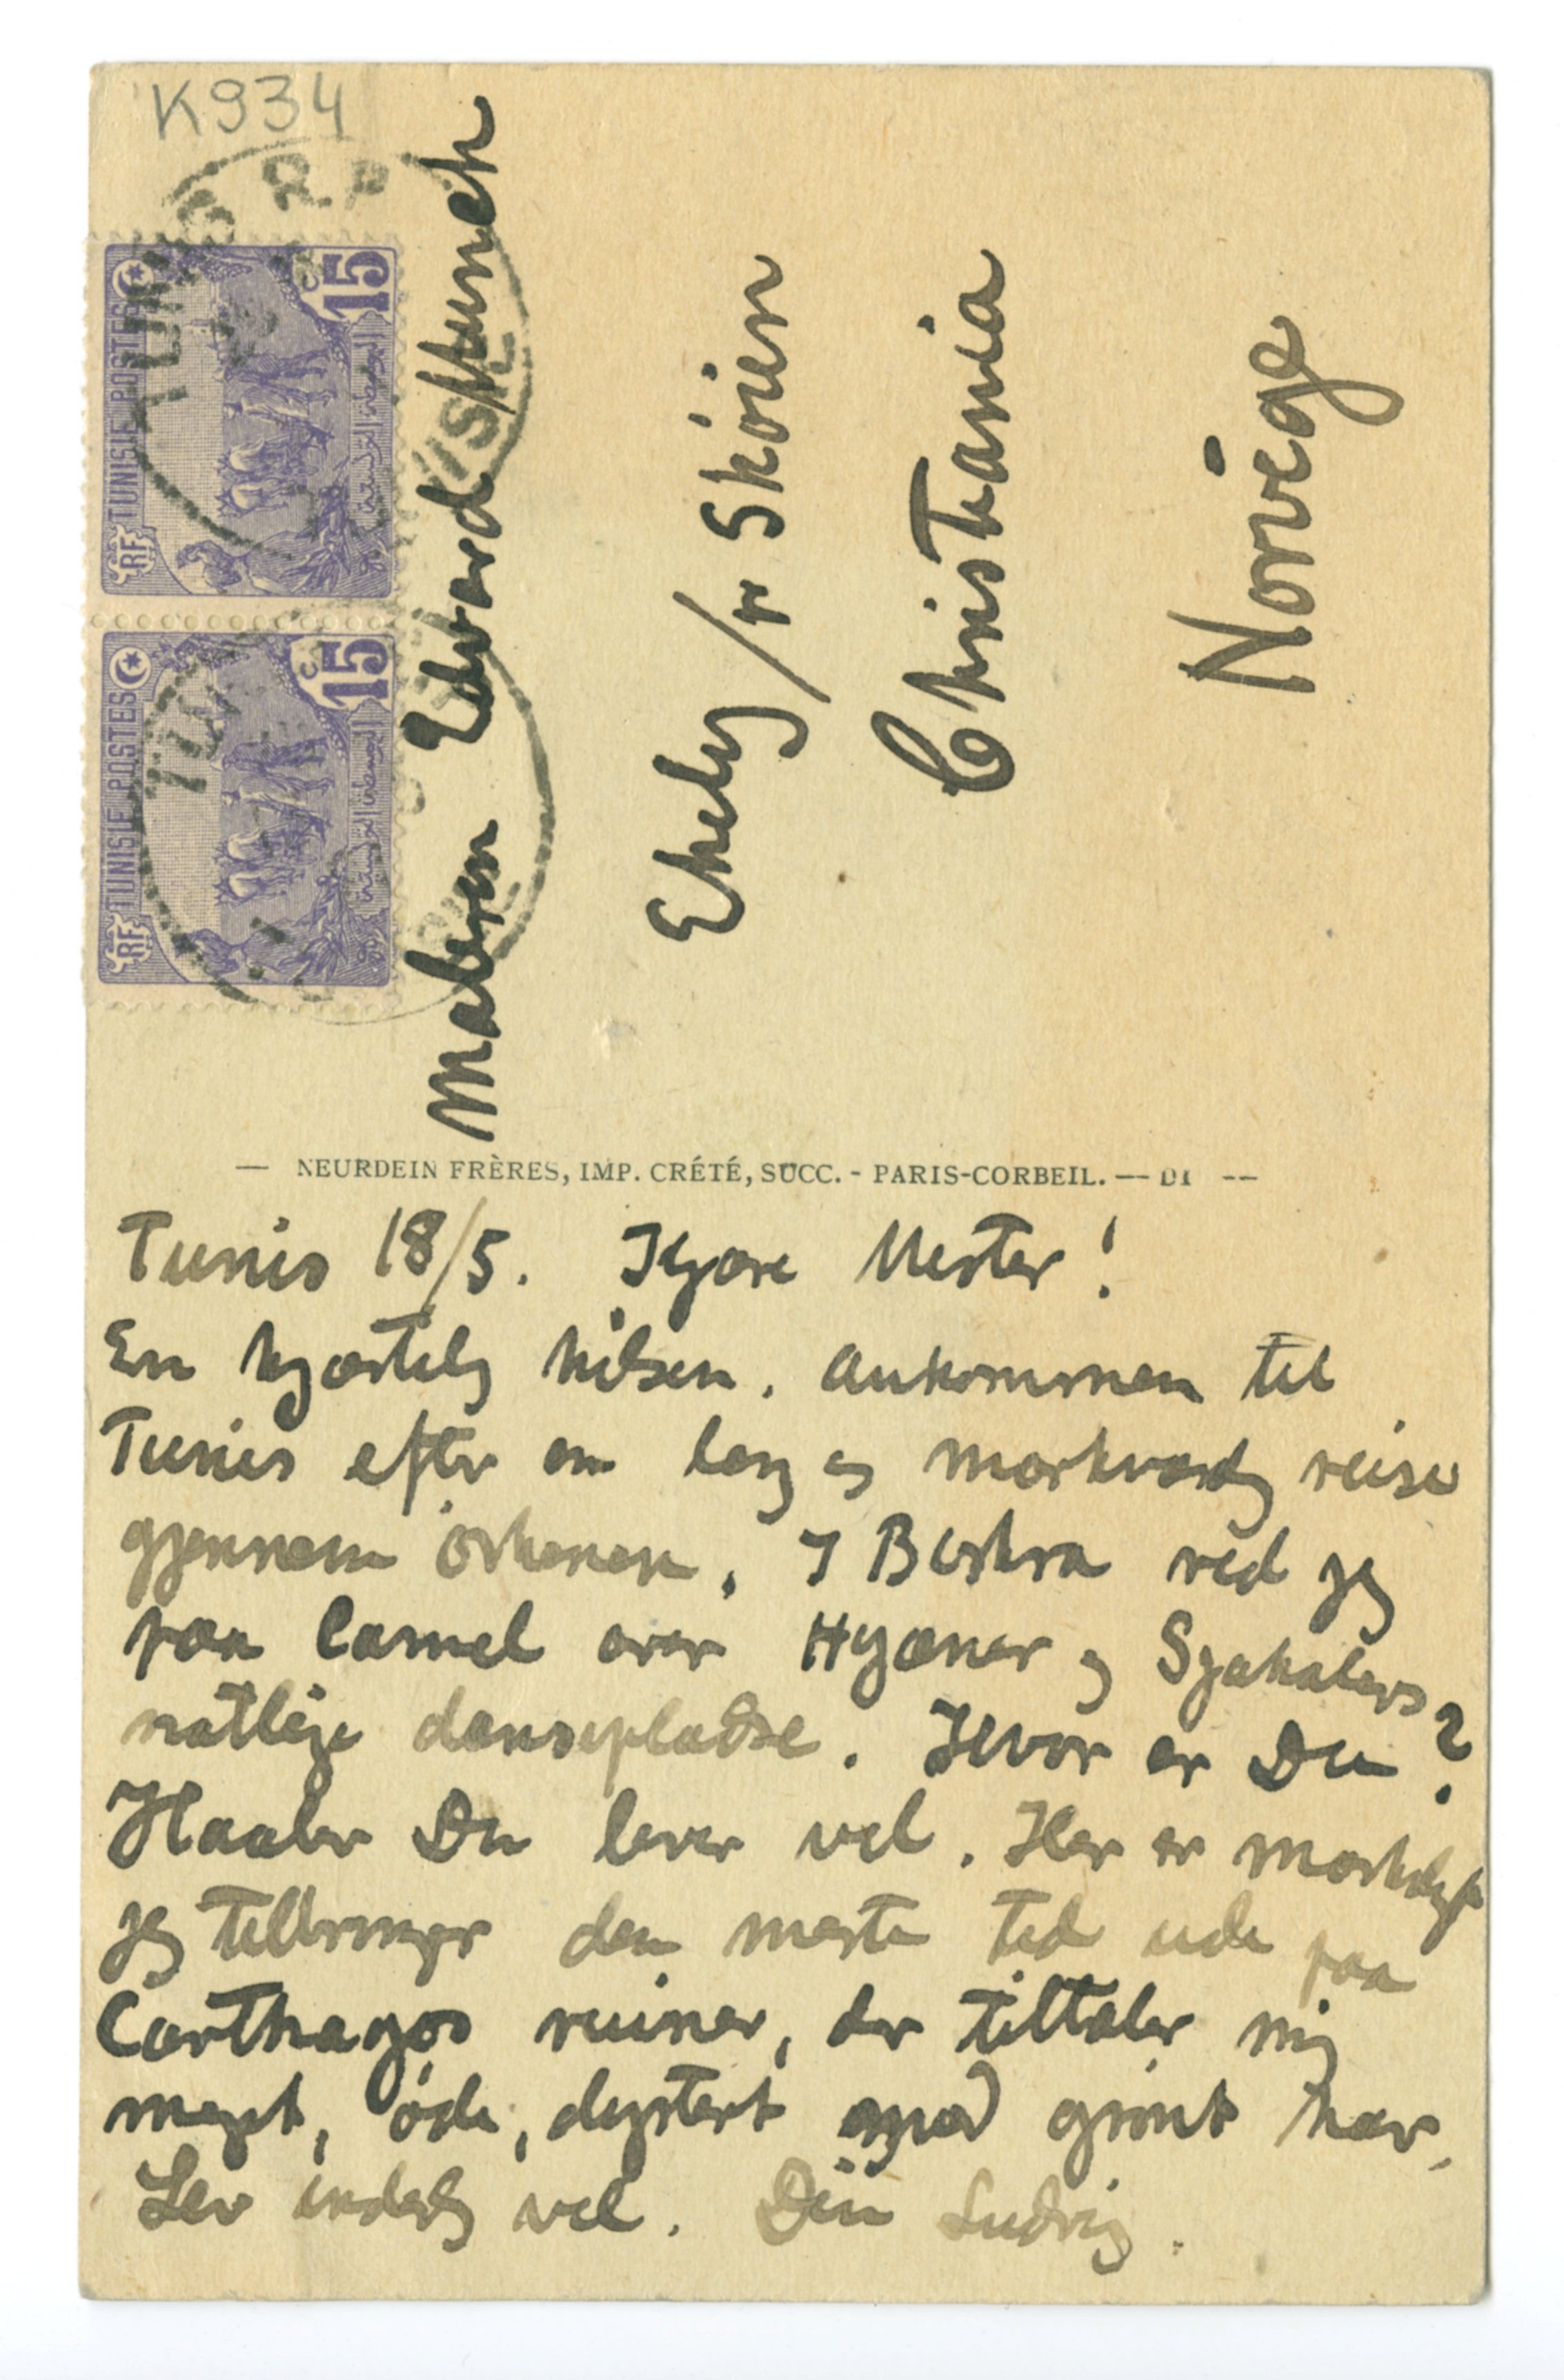 K934
TUNIS R.P
RF TUNISIE POSTES
15 c
RF TUNISIE POSTES
15 c
Maleren Edvard Munch
Ekely /pr Sköien
Christiania
Norvège
— NEURDEIN FRÈRES, IMP. CRÉTÉ, SUCC. - PARIS-CORBEIL. —
Tunis 18/5. Kjære Mester!
En hjærtelig hilsen. Ankommen til
Tunis efter en lang og mærkværdig reise
gjennem örkenen. I Biskra red jeg
paa Camel over Hyæner og Sjakalers
natlige dansepladse. Hvor er Du?
Haaber Du lever vel. Her er mærkeligt
jeg tilbringer den meste tid ude paa
Carthagos ruiner, der tiltaler mig
meget, öde, dystert med grönt hav.
Lev inderlig vel. Din Ludvig.